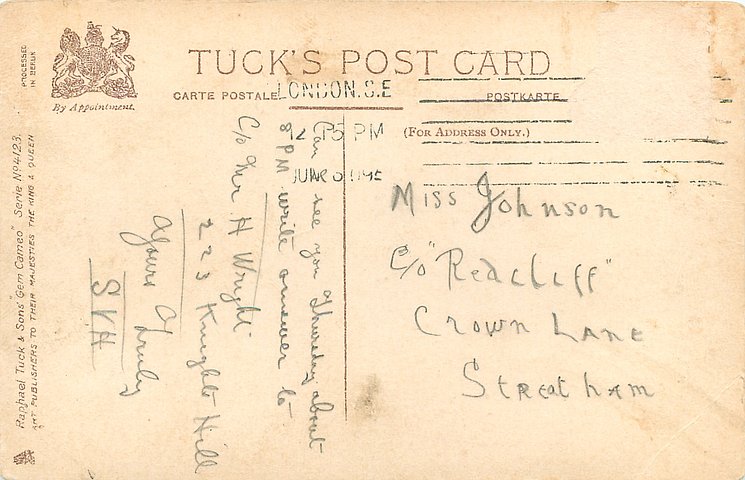 TUCK'S POST CARD
CARTE POSTALE
POSTKARTE
(FOR ADDRESS ONLY.)
By Appointment.
PROCESSED
IN BERLIN
Raphael Tuck & Sons' "Gem Cameo" Serie No 4123.
ART PUBLISHERS TO THEIR MAJESTIES THE KING & QUEEN
LONDON.S.E
12 15 PM
JUN
Can see you Thursday about
8 PM write answer to
C/o Mr H Wright
223 Knights Hill
Yours Truly
SVH
Miss Johnson
C/o "Redcliff"
Crown Lane
Streatham